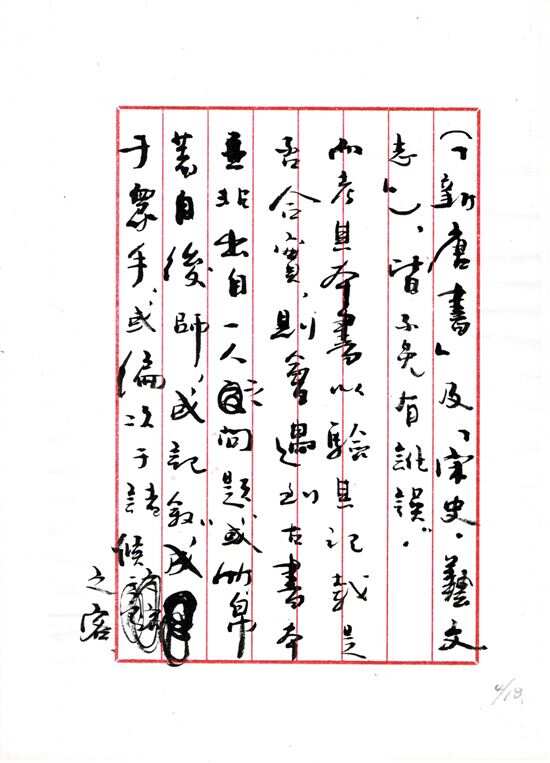 (「新唐書」及「宋史·藝文
志」)、皆不免有訛誤。
而考其本書以驗其記載是
否合實,則會遇到古書本
並非出自一人之 問題或竹帛
著自後師,或記敘成
于眾手,或編次于諸侯
之客
4/18.